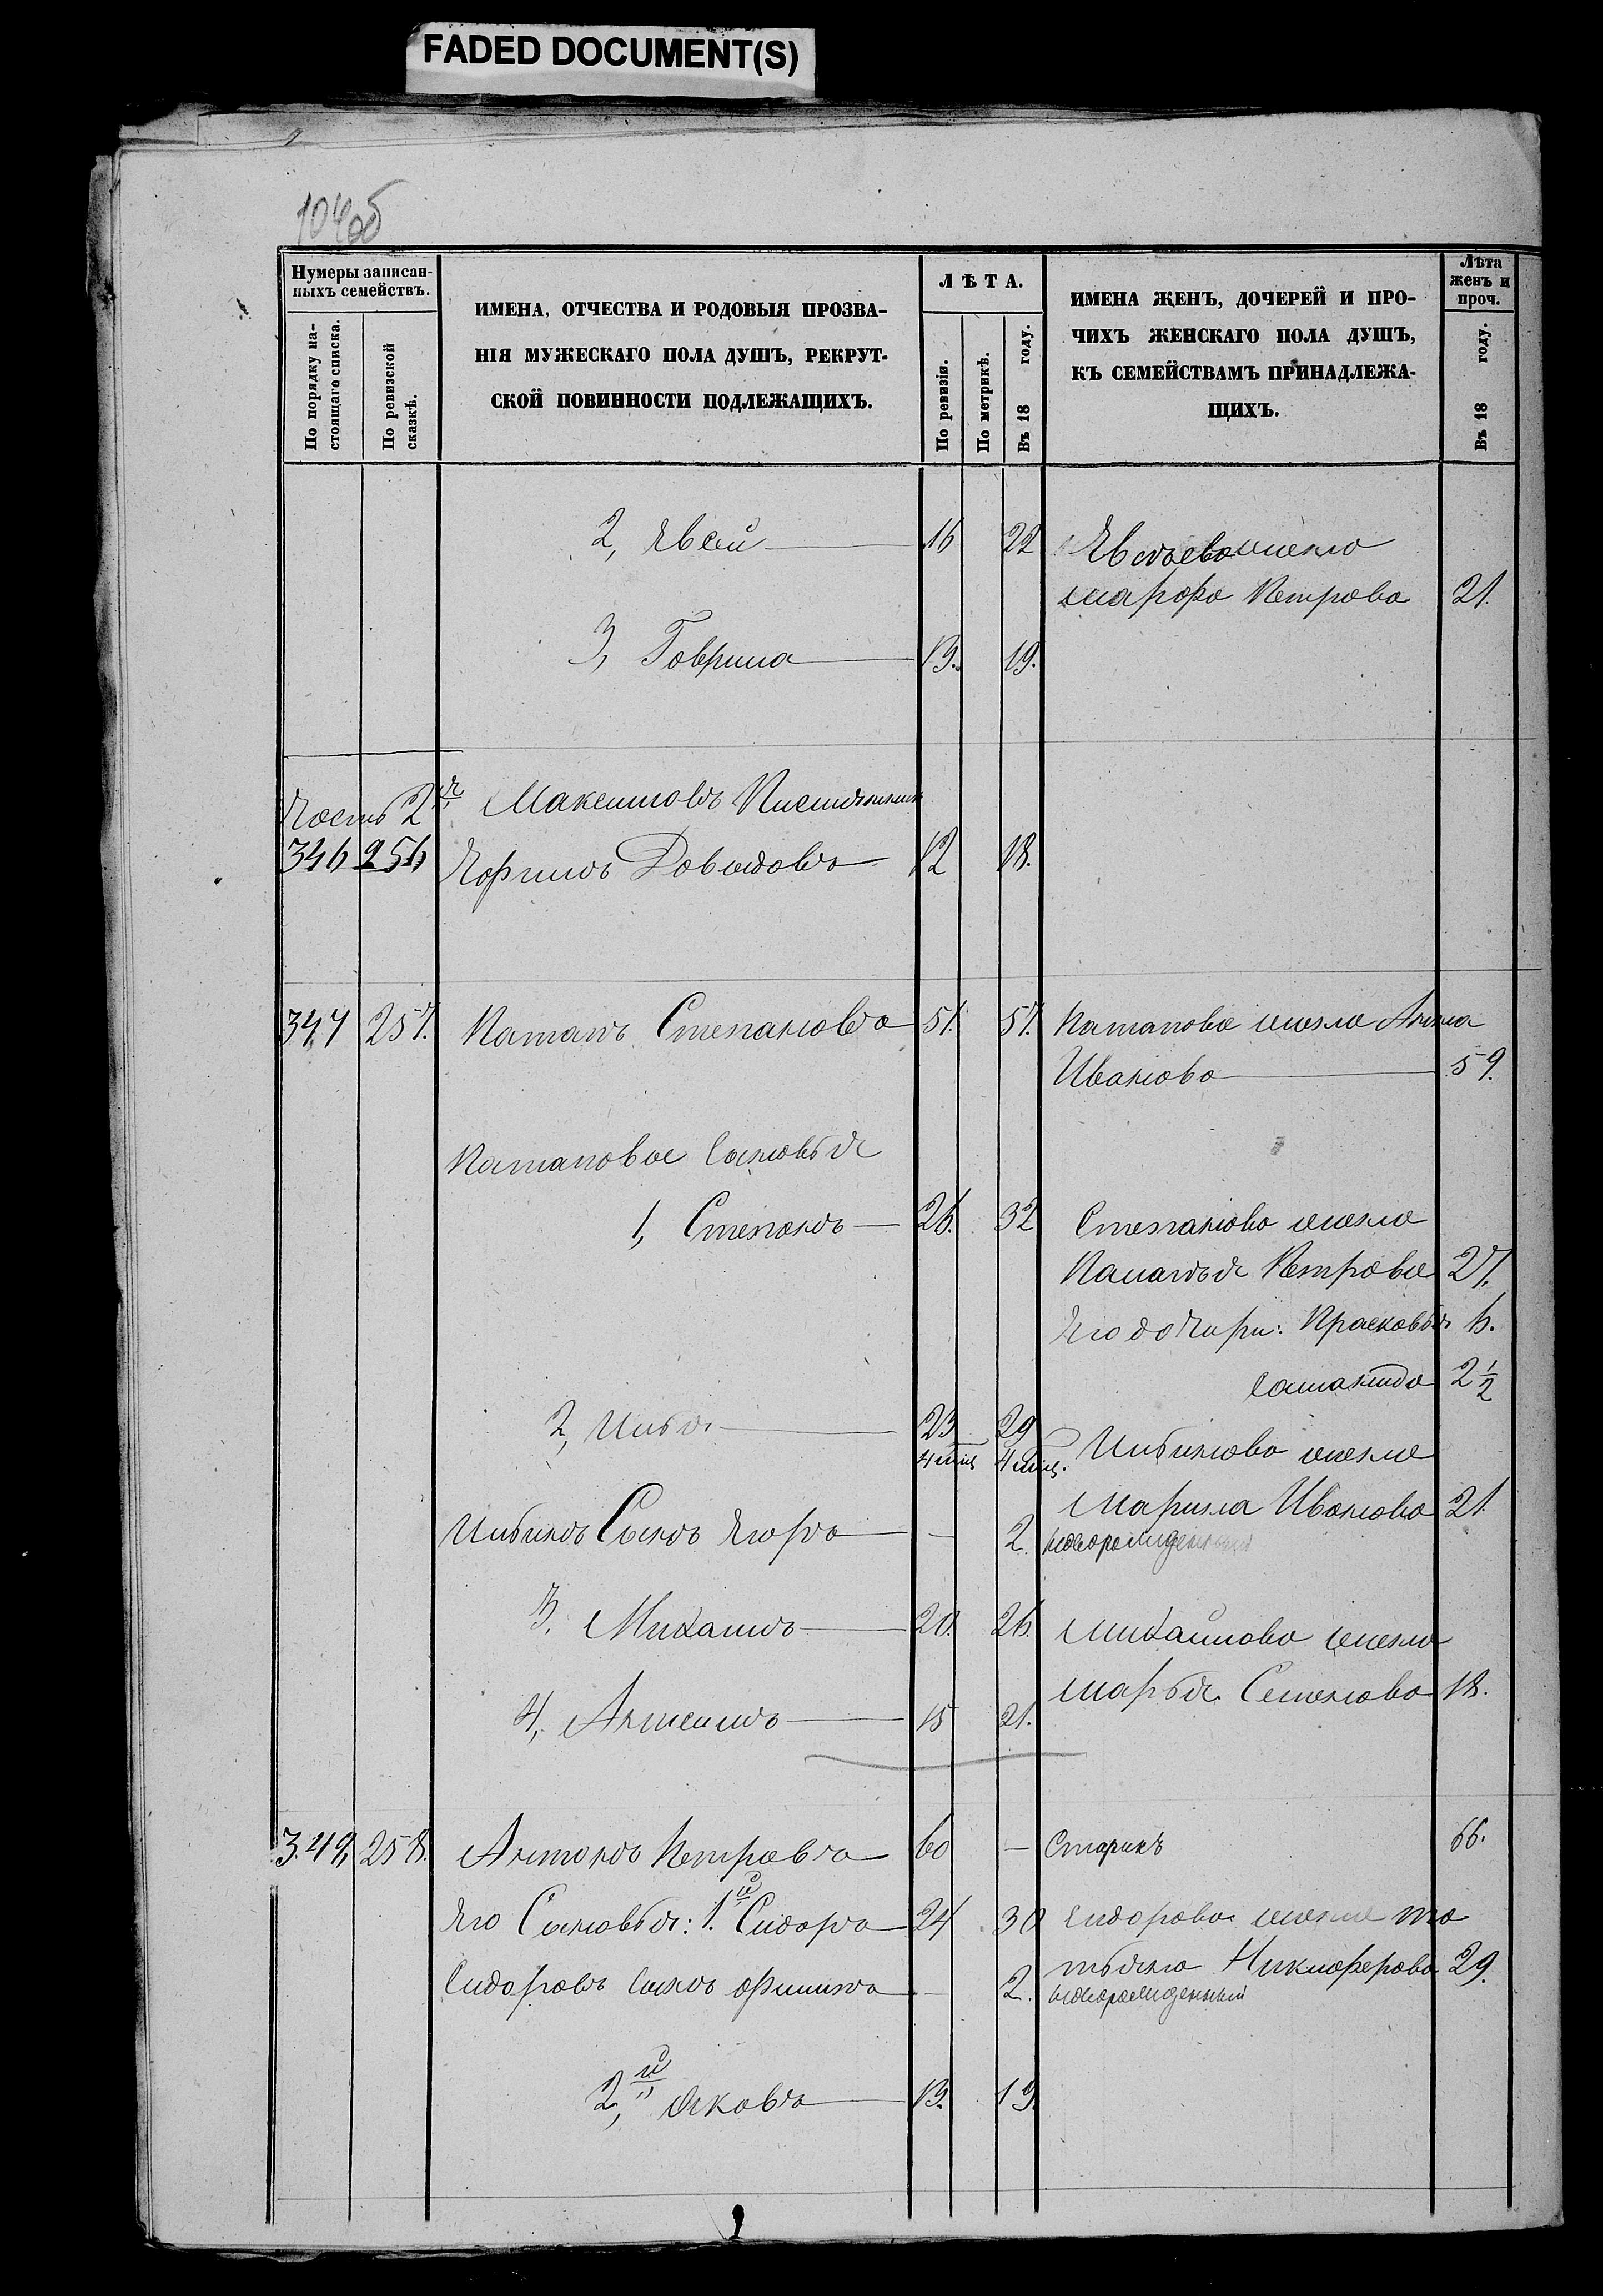 FADED DOCUMENT(S)
104об
Нумеры записан-
ныхъ семействъ.
По порядку на-
стоящаго списка.
По ревизской
сказкѣ.
ИМЕНА, ОТЧЕСТВА И РОДОВЫЯ ПРОЗВА-
НІЯ МУЖЕСКАГО ПОЛА ДУШЪ, РЕКРУТ-
СКОЙ ПОВИННОСТИ ПОДЛЕЖАЩИХЪ.
ЛѢТА.
По ревизіи.
По метрикѣ.
Въ 18 году.
ИМЕНА ЖЕНЪ, ДОЧЕРЕЙ И ПРО-
ЧИХЪ ЖЕНСКАГО ПОЛА ДУШЪ,
КЪ СЕМЕЙСТВАМЪ ПРИНАДЛЕЖА-
ЩИХЪ.
Лѣта
женъ и
проч.
Въ 18 году.
2, Евсей 16 22 жена
марфа Петрова 21.
3, Гаврила 13. 19.
Часть 2я Максимовъ
346 256 Давыдовъ 12 18.
347 257. Потапъ Степановъ 51. 57. Потапова жена Анна
Иванова 59.
Потаповы Сыновья
1, Степанъ 26. 32 Степанова жена
Петрова 27.
Его дочери: Прасковья 6.
2 1/2
2, Илья 23 29
4 мѣс 4 мѣс. Ильинова жена
Марина Иванова 21
Ильинъ Сынъ Егоръ — 2. новорожденный
3. Михаилъ 20. 26. Михаилова жена
марья Семенова 18.
4, 15 21.
349, 258. Антонъ Петровъ 60 — Старикъ 66.
Его Сыновья: 1й Сидоръ 24 30 Сидорова жена та
тьяна Никиферова 29.
Сидоровъ Сынъ Филипъ — 2. новорожденный
2й, Яковъ 13. 19.